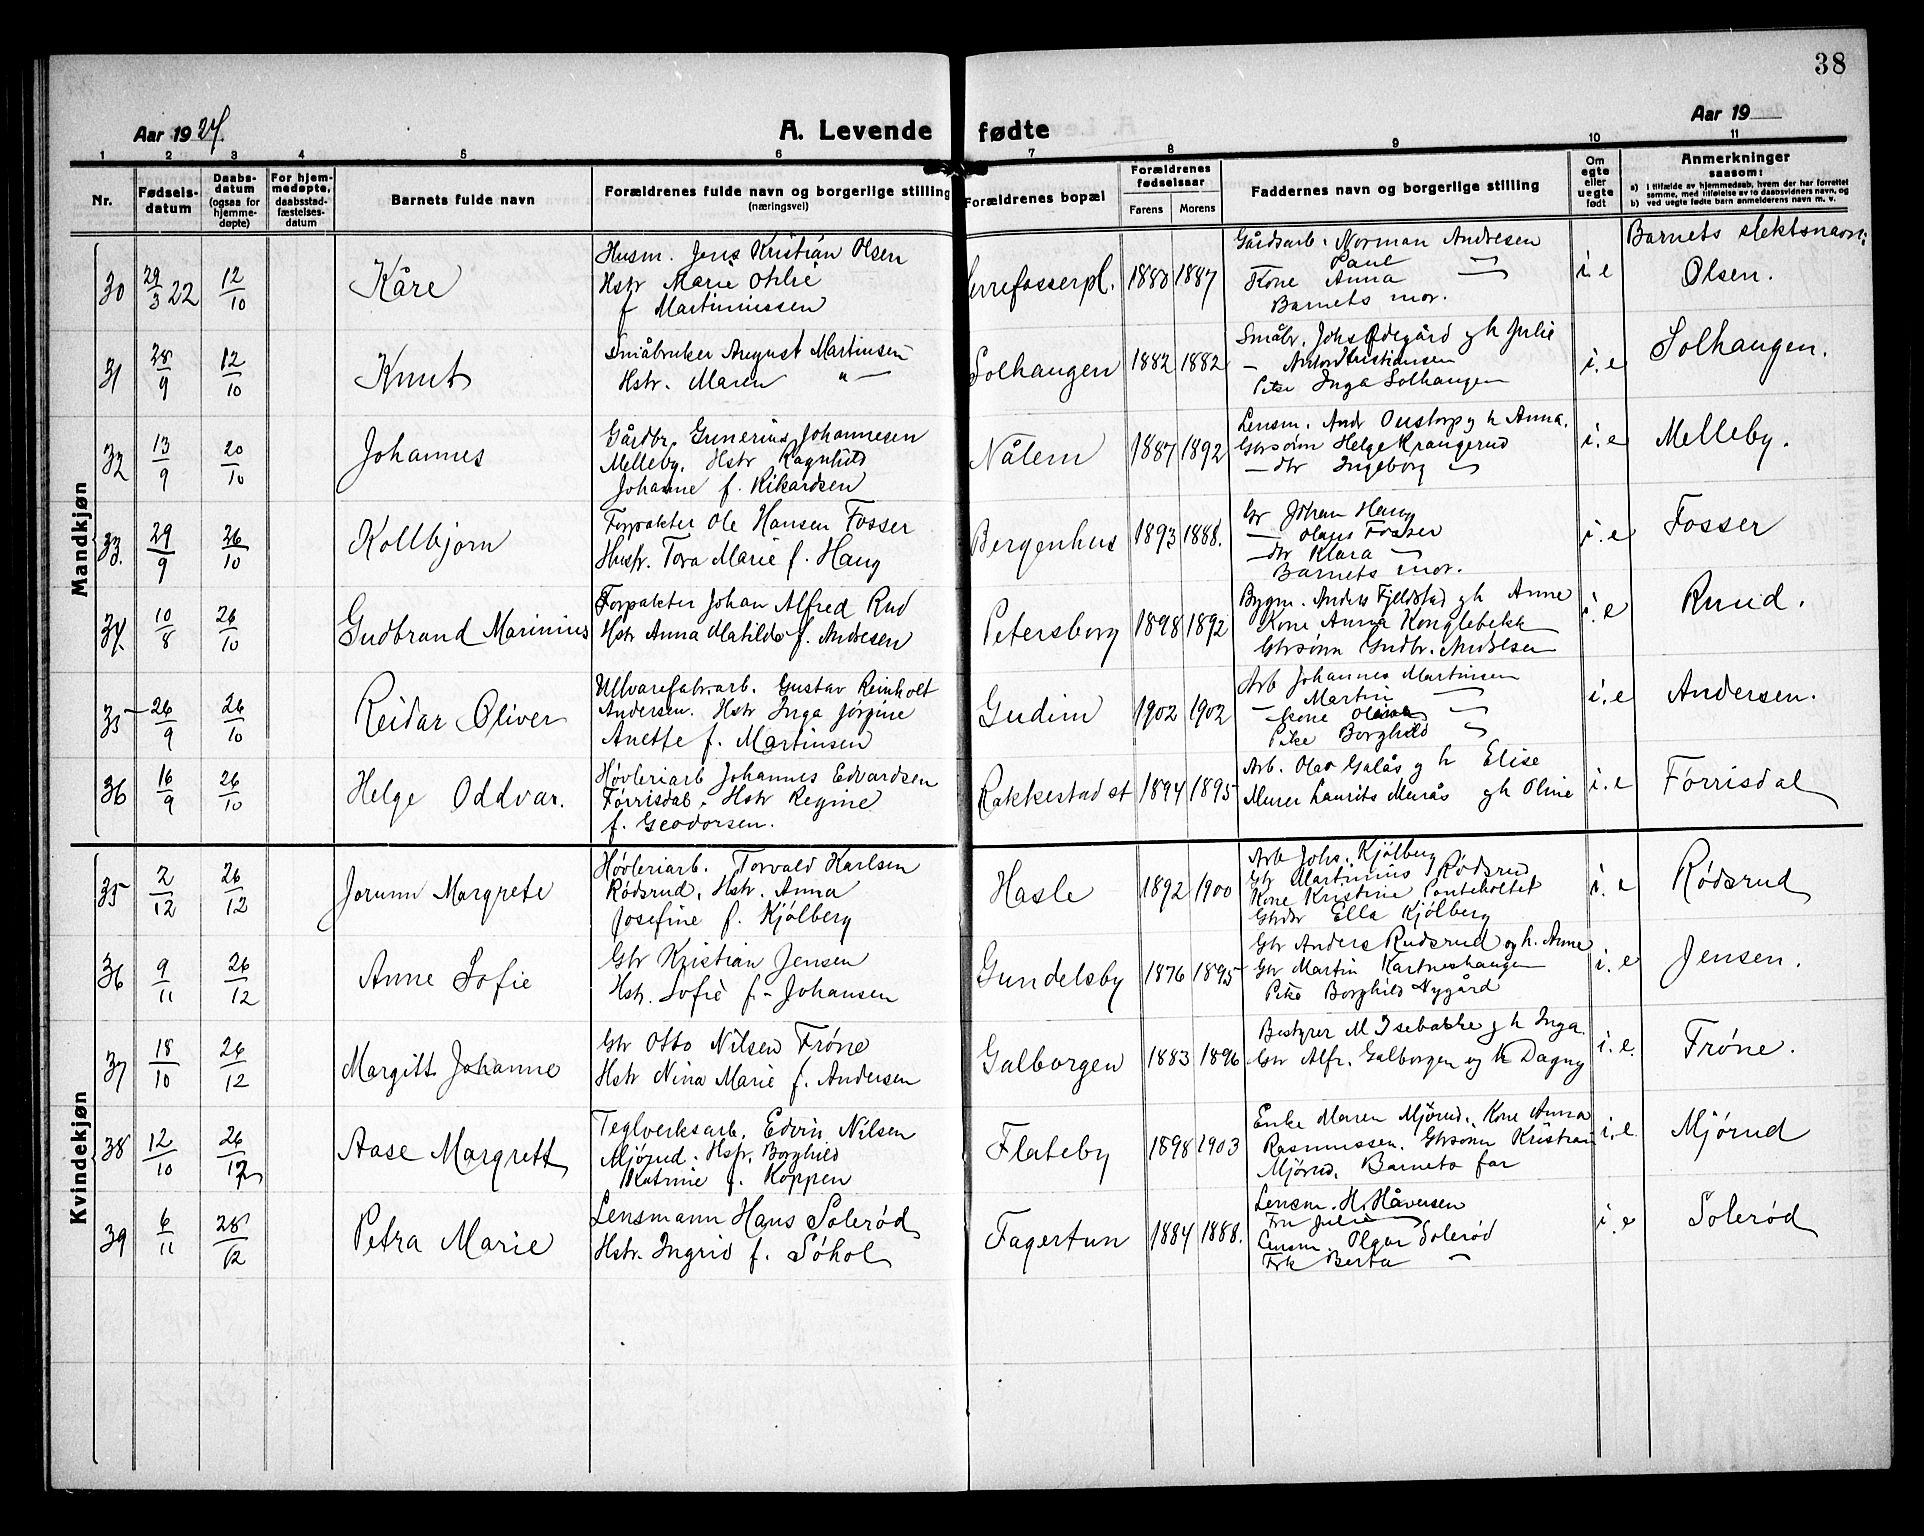 38
Aar 1924.
A. Levende fødte
Aar 19
1 2 3 4 5 6 7 8 9 10 11
Nr.
Fødsels-
datum
Daabs-
datum
(ogsaa for
hjemme-
døpte)
For hjem-
medøpte,
daabsstad-
fæstelses-
datum
Barnets fulde navn
Forældrenes fulde navn og borgerlige stilling
(næringsvei)
Forældrenes bopæl
Forældrenes
fødselsaar
Farens Morens
Faddernes navn og borgerlige stilling
Om
egte
eller
uegte
født
Anmerkninger
saasom:
a) i tilfælde av hjemmedaab, hvem der har forrettet
samme, med tilføielse av to daabsvidners navn, og
b) ved uegte fødte barn anmelderens navn m. v.
Mandkjøn
30 29/3 22 12/10 Kåre
Husm. Jens Kristian Olsen
Hstr Marie Otilie
f Martiniussen
1887
Gårdsarb. Norman Andresen
Paul
Kone Anna
Barnets mor.
i. e
Barnets slektsnavn:
Olsen.
31 28/9 12/10 Knut
Småbruker August Martinsen
Hstr. Maren " —
Solhaugen 1882 1882
Småbr. Johs Ødegård og h Julie
— Kristiansen
Pike Inga Solhaugen
i. e
Solhaugen.
32 13/9 20/10 Johannes
Gårdbr. Gunerius Johannesen
Melleby. Hstr Ragnhild
Johanne f. Rikardsen
Nålem 1887 1892
Lensm. Andr Onstorp og h Anna.
Gbrsønn Helge Krangerud
— dtr Ingeborg —
i. e
Melleby.
33. 29/9 26/10 Kollbjørn
Forpakter Ole Hansen Fosser
Hustr. Tora Marie f. Haug
Bergenhus 1893 1888.
Gbr Johan Haug
— Olaus Fosser
— dtr Klara —
Barnets mor.
i. e
Fosser
34. 10/8 26/10 Gudbrand Marinius
Forpakter Johan Alfred Rud
Hstr Anna Matilde f. Andresen
Petersborg 1898 1892
Bygm. Anders Fjeldstad og h Anne
Kone Anna Konglebekk
Gbrsønn Gudbr. Andresen
i. e
Ruud.
35 26/9 26/10 Reidar Oliver
Ullvarefabr.arb. Gustav Reinholt
Andersen. Hstr Inga Jørgine
Anette f. Martinsen
Gudim 1902 1902
Arb Johannes Martinsen
— Martin —
— kone Olina —
Pike Borghild —
i. e
Andersen.
36 16/9 26/10 Helge Oddvar.
Høvleriarb Johannes Edvardsen
Førrisdal. Hstr Regine
f. Geodorsen.
Rakkestad st 1894 1895
Arb. Olav Galås og h Elise
Murer Laurits Murås og h Oline
i. e
Førrisdal
Kvindekjøn
35 2/12 26/12 Jorunn Margrete
Høvleriarb. Torvald Karlsen
Rødsrud. Hstr. Anna
Josefine f. Kjølberg
Hasle 1892 1900
Arb Johs. Kjølberg
Gbr Martinius Rødsrud
Kone Kristine
Gbrdtr Ella Kjølberg
i. e
Rødsrud
36 9/11 26/12 Anne Sofie
Gbr Kristian Jensen
Hstr. Sofie f. Johansen
Gundelsby 1876 1895
Gbr Anders Rudsrud og h. Anne
Gbr Martin Kartneshaugen
Pike Borghild Nygård
i. e
Jensen.
37 18/10 26/12 Margitt Johanne
Gbr Otto Nilsen Frøne
Hstr Nina Marie f. Andersen
Galborgen 1883 1896
Bestyrer M Isebakke og h Inga.
Gbr Alfr. Galborgen og h Dagny
i. e.
Frøne.
38 12/10 26/12 Aase Margrett
Teglverksarb. Edvin Nilsen
Mjørud. Hstr. Borghild
Katrine f. Koppen
Flateby 1898 1903
Enke Maren Mjørud. Kone Anna
Rasmussen. Gbrsønn Kristian
Mjørud. Barnets far
i. e
Mjørud
39 6/11 28/12 Petra Marie
Lensmann Hans Solerød
Hstr. Ingrid f. Søhol
Fagertun 1884 1888.
Lensm. H. Håversen
Fru Julie —
Lensm. Olgar Solerød
Frk Berta —
i. e
Solerød